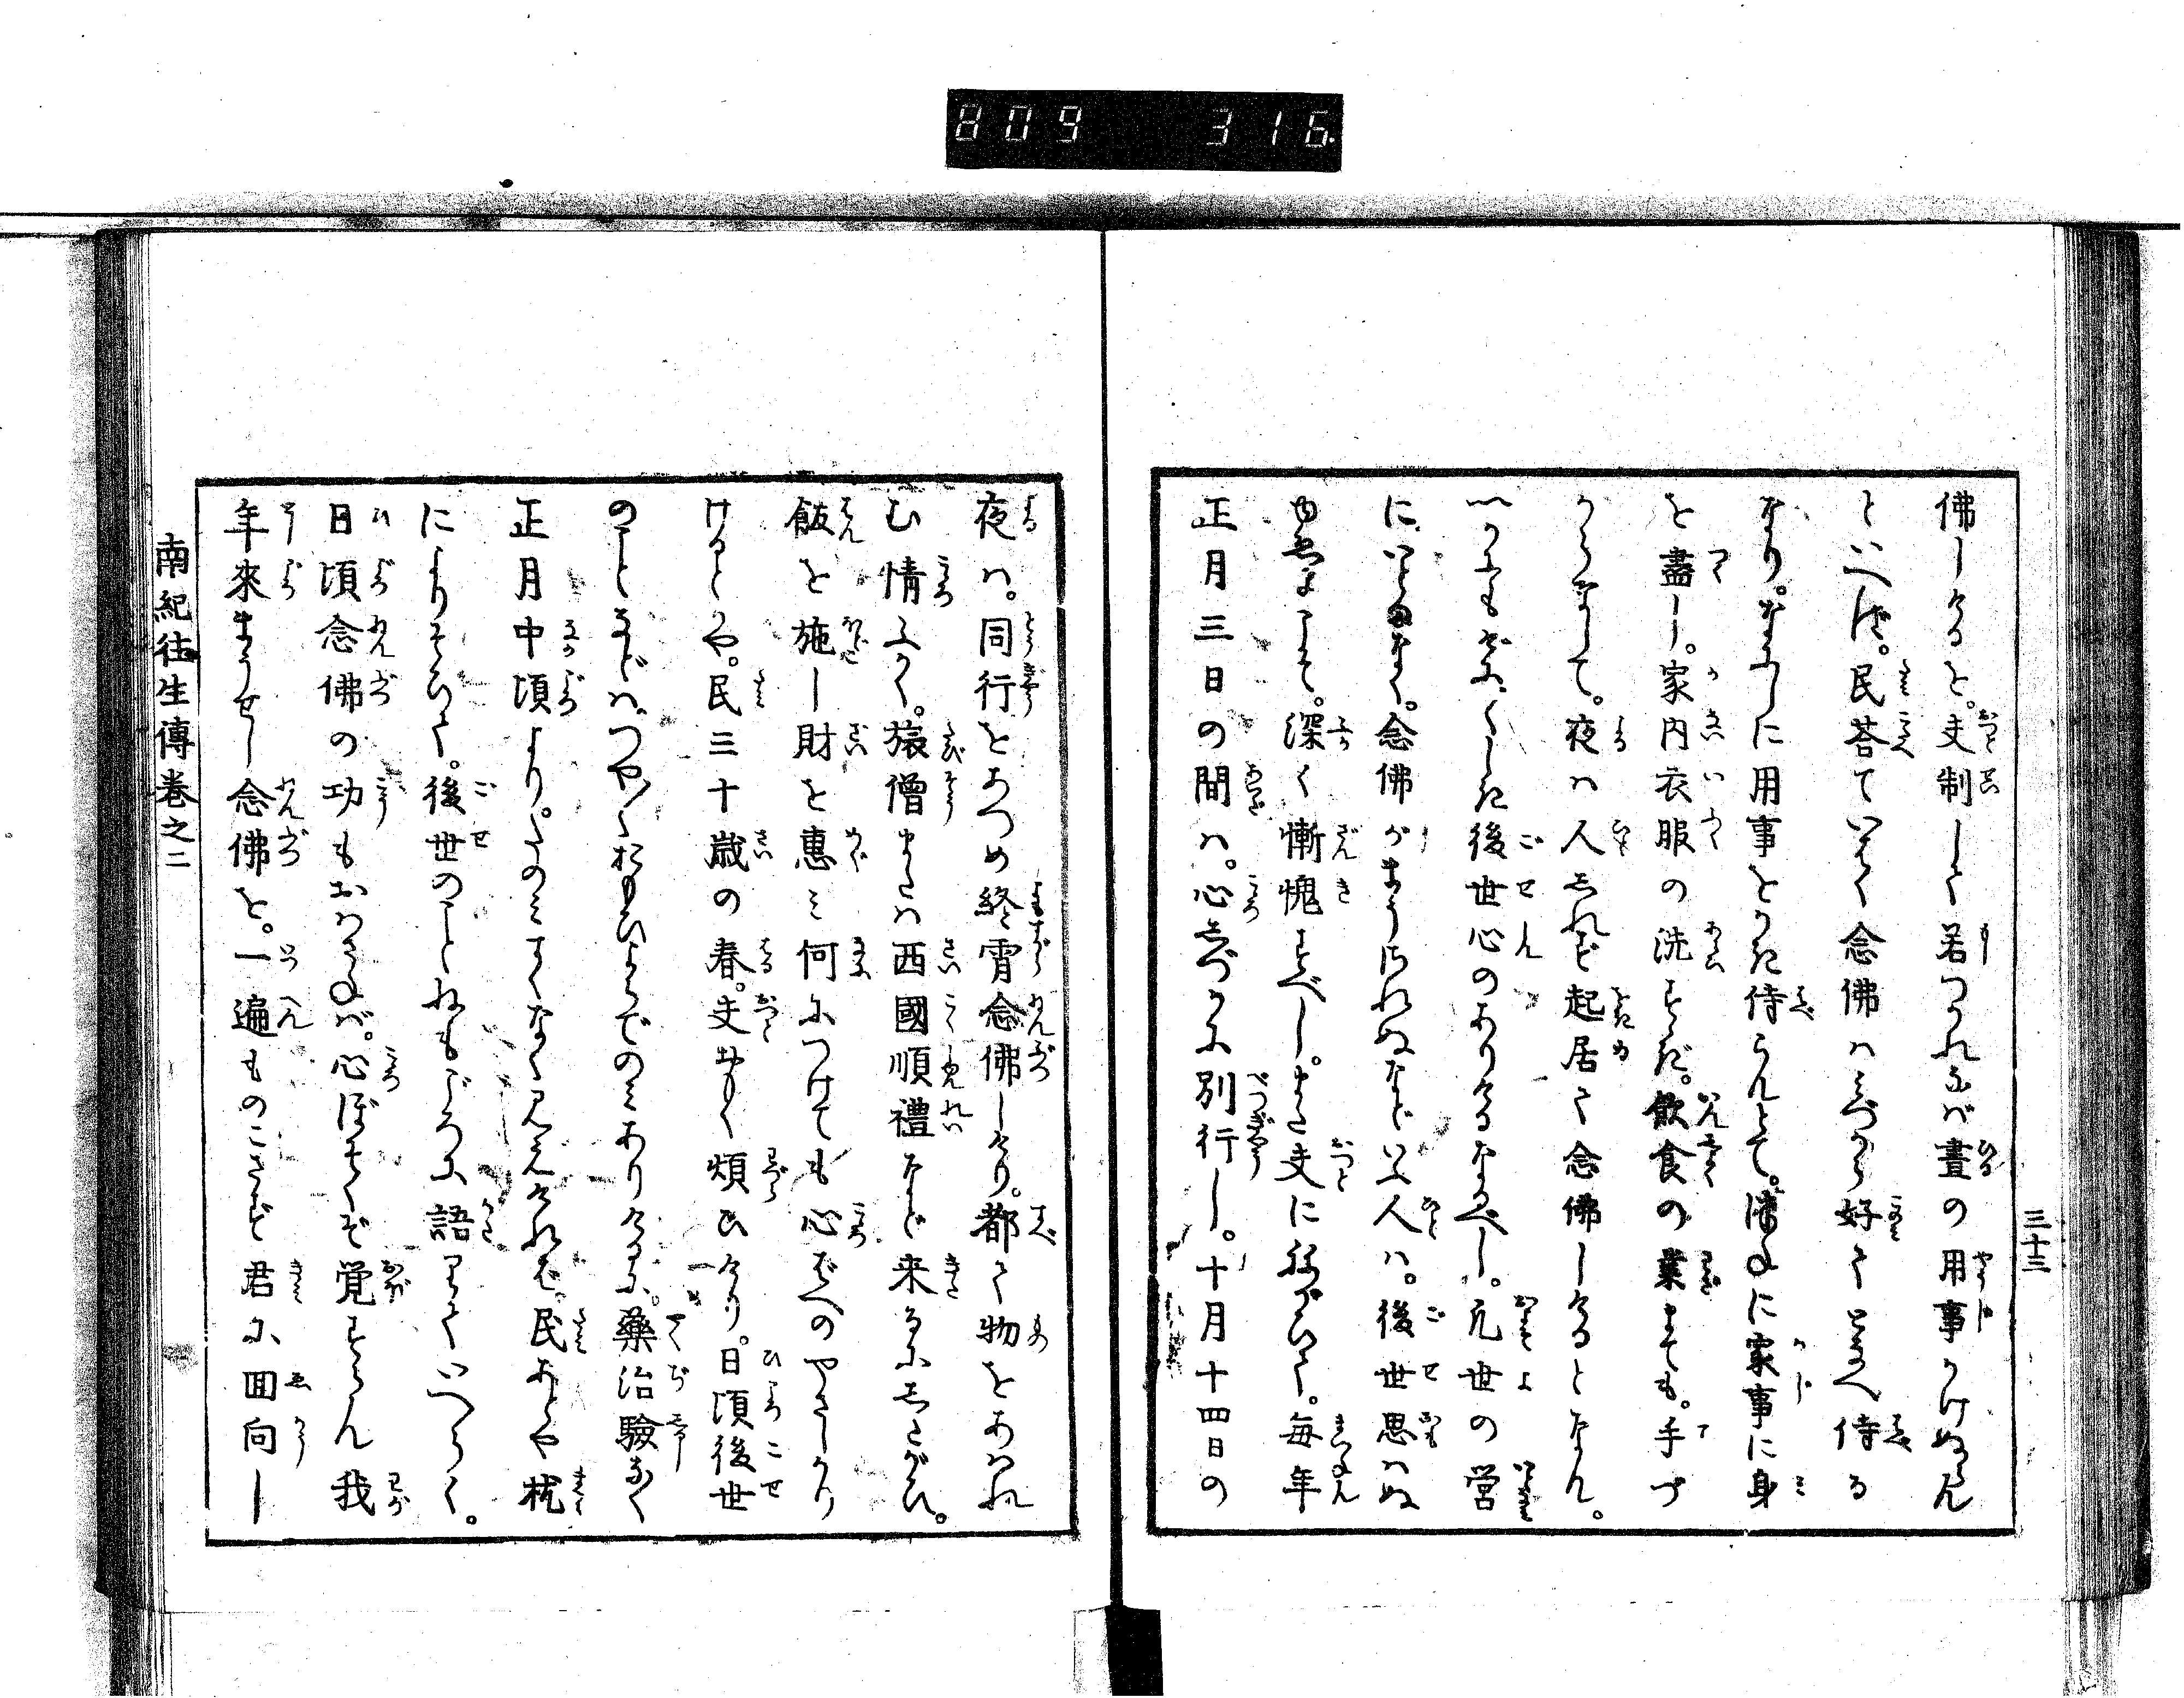 809 316
三十三
佛しけるを。夫制して若つかれなば晝の用事かけぬらん
といへば。民荅ていはく念佛はみづから好てとなへ侍る
なり。なふしに用事をかき侍らんとて。に家事に身
を盡し。家内衣服の洗すゝぎ。飲食の業までも。手づ
からなして。夜は人しれず起居て念佛しけるとなん。
いかにもかたくしき後世心のありけるなるべし。凡世の營
に。いとまなく。念佛がまうされぬなどいふ人は。後世思はぬ
ゆゑよとて。深く慚愧すべし。また夫にねがひて。毎年
正月三日の間は。心しづかに別行し。十月十四日の
夜は。同行をあつめ終霄念佛しけり。都て物をあはれ
む情ふかく。旅僧または西國順禮など来るにしたがひ。
飯を施し財を惠み何につけても心ばへのやさしかり
けるとや。民三十歳の春。夫やもく煩ひけり。日頃後世
のことなどは。つや〱おもひよらでのみありけるに。藥治驗なく
正月中頃より。たのみすくなく見えければ。民あとや枕
によりそひて。後世のことねもごろに語りていへらく。
日頃念佛の功もおはさねば。心ぼそくぞ覚すらん我
年來まうせし念佛を。一遍ものこさず君に回向し
南紀往生傳巻之二